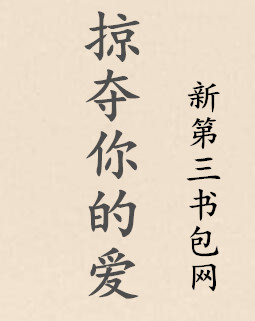 掠夺你的爱
新第三书包网